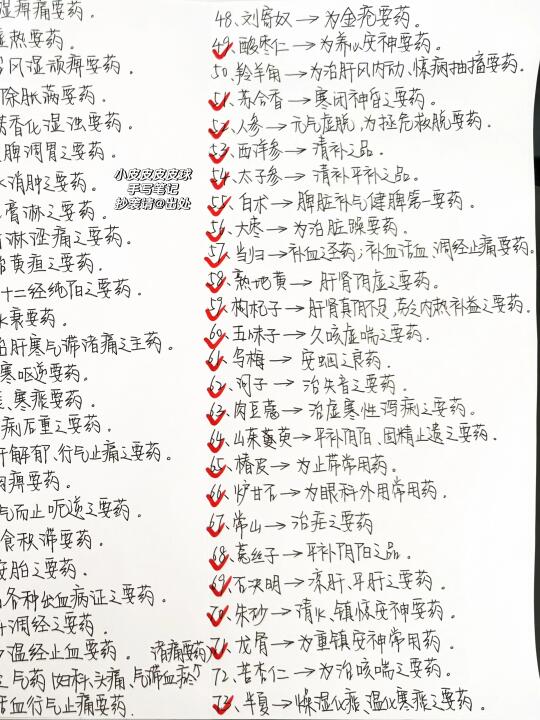 湿痹痛要药.
虚热要药.
风湿顽痹要药.
除胀满要药.
芳香化湿浊要药.
醒脾调胃之要药.
水消肿之要药.
膏淋之要药.
淋涩痛之要药.
黄疸之要药.
十二经纯阳之要药.
水寒要药.
治肝寒气滞诸痛之主药.
寒呕逆要药.
、寒痰要药.
痢后重之要药.
肝解郁、行气止痛之要药.
胸痹要药.
气而止呃逆之要药.
食积滞要药.
安胎之要药.
各种出血病证之要药.
调经之要药.
温经止血要药. 诸痛要药)
之气药(妇科头痛、气滞血瘀
活血行气止痛要药.
小皮皮皮皮球
手写笔记
抄袭请@出处
48、刘寄奴→为金疮要药.
49、酸枣仁→为养心安神要药.
50、羚羊角→为治肝风内动、惊痫抽搐要药.
51、苏合香→寒闭神昏之要药.
52、人参→元气虚脱,为拯危救脱要药.
53、西洋参→清补之品.
54、太子参→清补平补之品.
55、白术→脾脏补气健脾第一要药.
56、大枣→为治脏躁要药.
57、当归→补血圣药;补血活血、调经止痛要药.
58、熟地黄→肝肾阴虚之要药.
59、枸杞子→肝肾真阴不足,劳乏内热补益之要药.
60、五味子→久咳虚喘之要药.
61、乌梅→安蛔之良药.
62、诃子→治失音之要药.
63、肉豆蔻→治虚寒性泻痢之要药.
64、山茱萸→平补阴阳、固精止遗之要药.
65、椿皮→为止带常用药.
66、炉甘石→为眼科外用常用药.
67、常山→治疟之要药
68、菟丝子→平补阴阳之品.
69、石决明→凉肝、平肝之要药.
70、朱砂→清心、镇惊安神要药.
71、龙骨→为重镇安神常用药.
72、苦杏仁→为治咳喘之要药.
73、半夏→燥湿化痰、温化寒痰之要药.